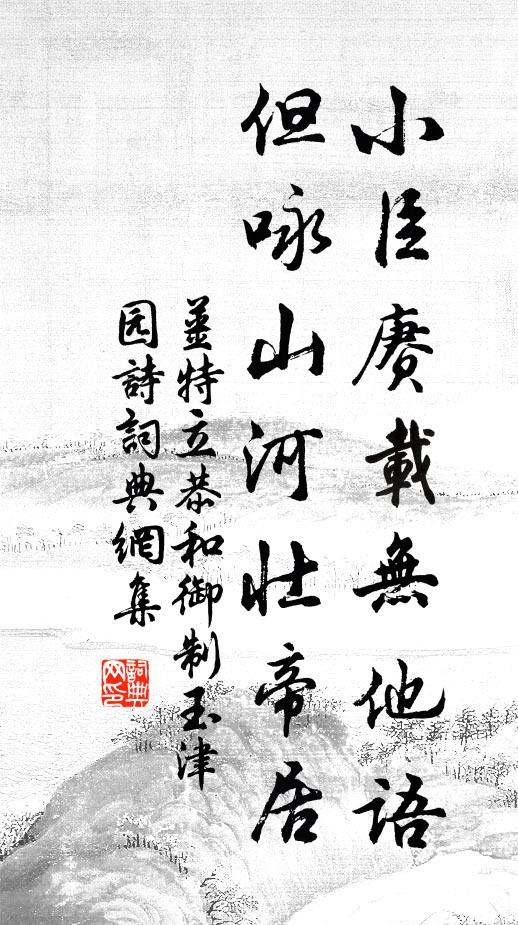 小臣赓載無他語
但咏山河壮帝居
姜特立恭和御制玉津
园詩詞典網集
詞典网印